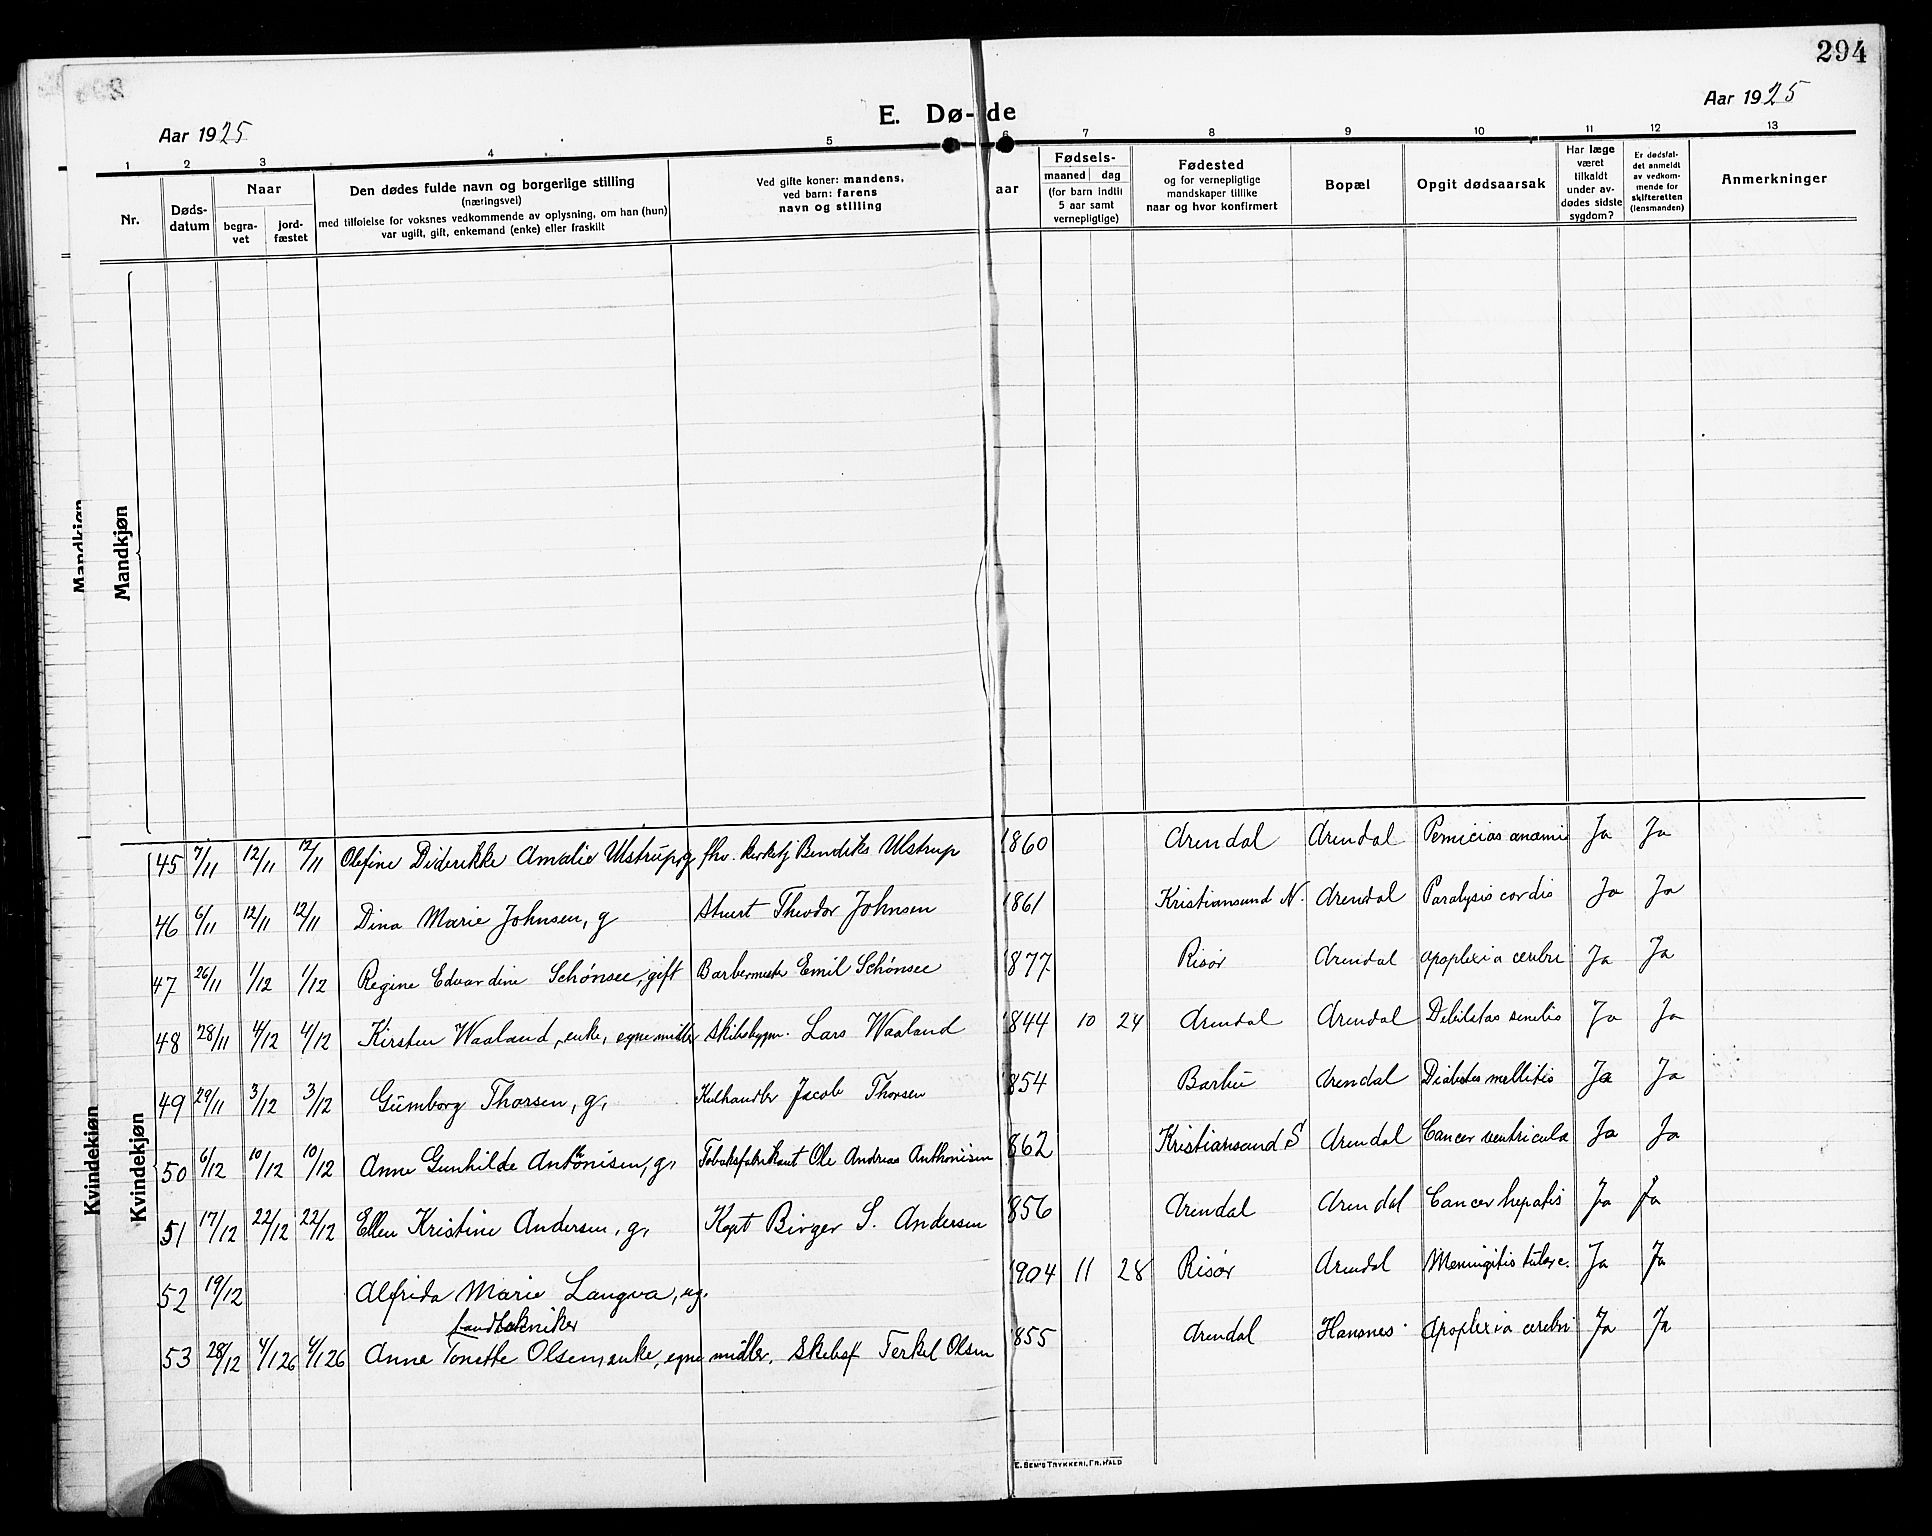 294
Aar 1925
E. Dø- de
Aar 1925
1 2 3 4 5 6 7 8 9 10 11 12 13
Nr.
Døds-
datum
Naar
begra-
vet
jord-
fæstet
Den dødes fulde navn og borgerlige stilling
(næringsvei)
med tilføielse for voksnes vedkommende av oplysning, om han (hun)
var ugift, gift, enkemand (enke) eller fraskilt
Ved gifte koner: mandens,
ved barn: farens
navn og stilling
aar
Fødsels-
maaned dag
(for barn indtil
5 aar samt
vernepligtige)
Fødested
og for vernepligtige
mandskaper tillike
naar og hvor konfirmert
Bopæl
Opgit dødsaarsak
Har læge
været
tilkaldt
under av-
dødes sidste
sygdom?
Er dødsfal-
det anmeldt
av vedkom-
mende for
skifteretten
(lensmanden)
Anmerkninger
Mandkjøn
Mandkjøn
Kvindekjøn
Kvindekjøn
45 7/11 12/11 12/11 Olefine Diderikke Amalie Ulstrup, g fhv. kirketj Bendiks Ulstrup 1860 Arendal Arendal Pernicias anæmi Ja Ja
46 6/11 12/11 12/11 Dina Marie Johnsen, g Stuert Theodor Johnsen 1861 Kristiansund N. Arendal Paralysis cordis Ja Ja
47 26/11 1/12 1/12 Regine Edvardine Schönsee, gift Barbermester Emil Schönsee 1877 Risør Arendal Apoplexia cerebri Ja Ja
48 28/11 4/12 4/12 Kirsten Waaland, enke, egne midler Skibsbygm. Lars Waaland 1844 10 24 Arendal Arendal Debilitas senilis Ja Ja
49 29/11 3/12 3/12 Gumborg Thorsen, g, Kulhandler Jacob Thorsen 1854 Barbu Arendal Diabetes mellitis Ja Ja
50 6/12 10/12 10/12 Anne Gunhilde Antonisen, g, Tobaksfabrikant Ole Andreas Anthonisen 1862 Kristiansand S Arendal Cancer ventricula Ja Ja
51 17/12 22/12 22/12 Ellen Kristine Andersen, g, Kapt Birger S. Andersen 1856 Arendal Arendal Cancer hepatis Ja Ja
52 19/12 Alfrida Marie Langva, ug. 1904 11 28 Risør Arendal Meningitis tuberc. Ja Ja
tandtekniker
53 28/12 4/1 26 4/1 26 Anne Tonette Olsen, enke, egne midler. Skibsf Terkel Olsen 1855 Arendal Hansnes Apoplexia cerebri Ja Ja
E. SEM'S TRYKKERI, FR.HALD